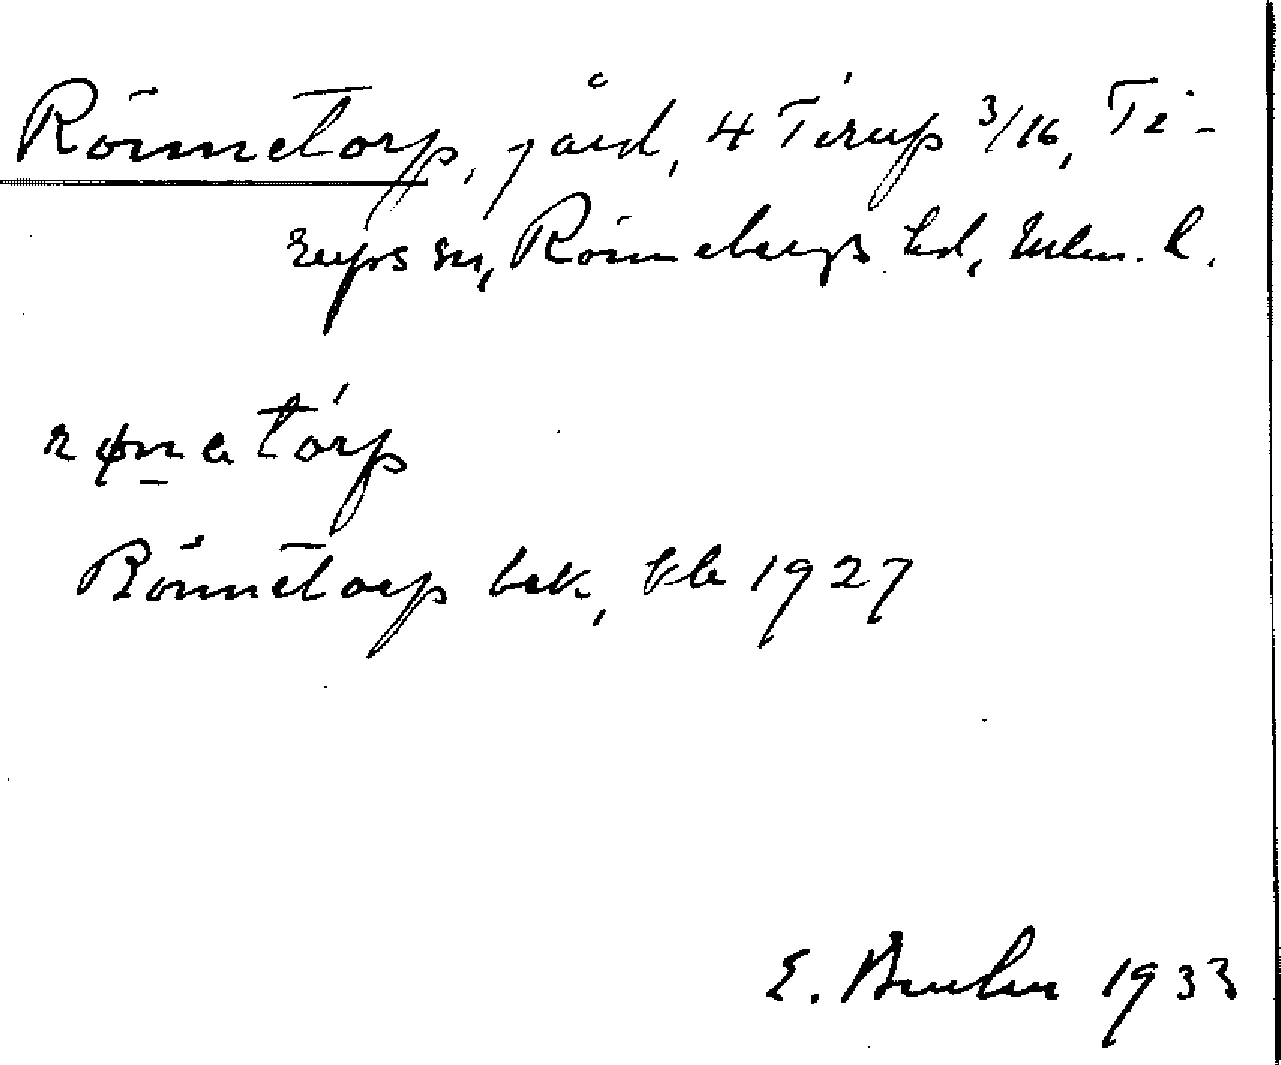 Rönnetorp, gård, 4 Tirup 3/16, Ti-
rups sn, Rönnebergs hd, Mlm. l.
rønatórp
Rönnetorp bek, kbl 1927
E. 1933